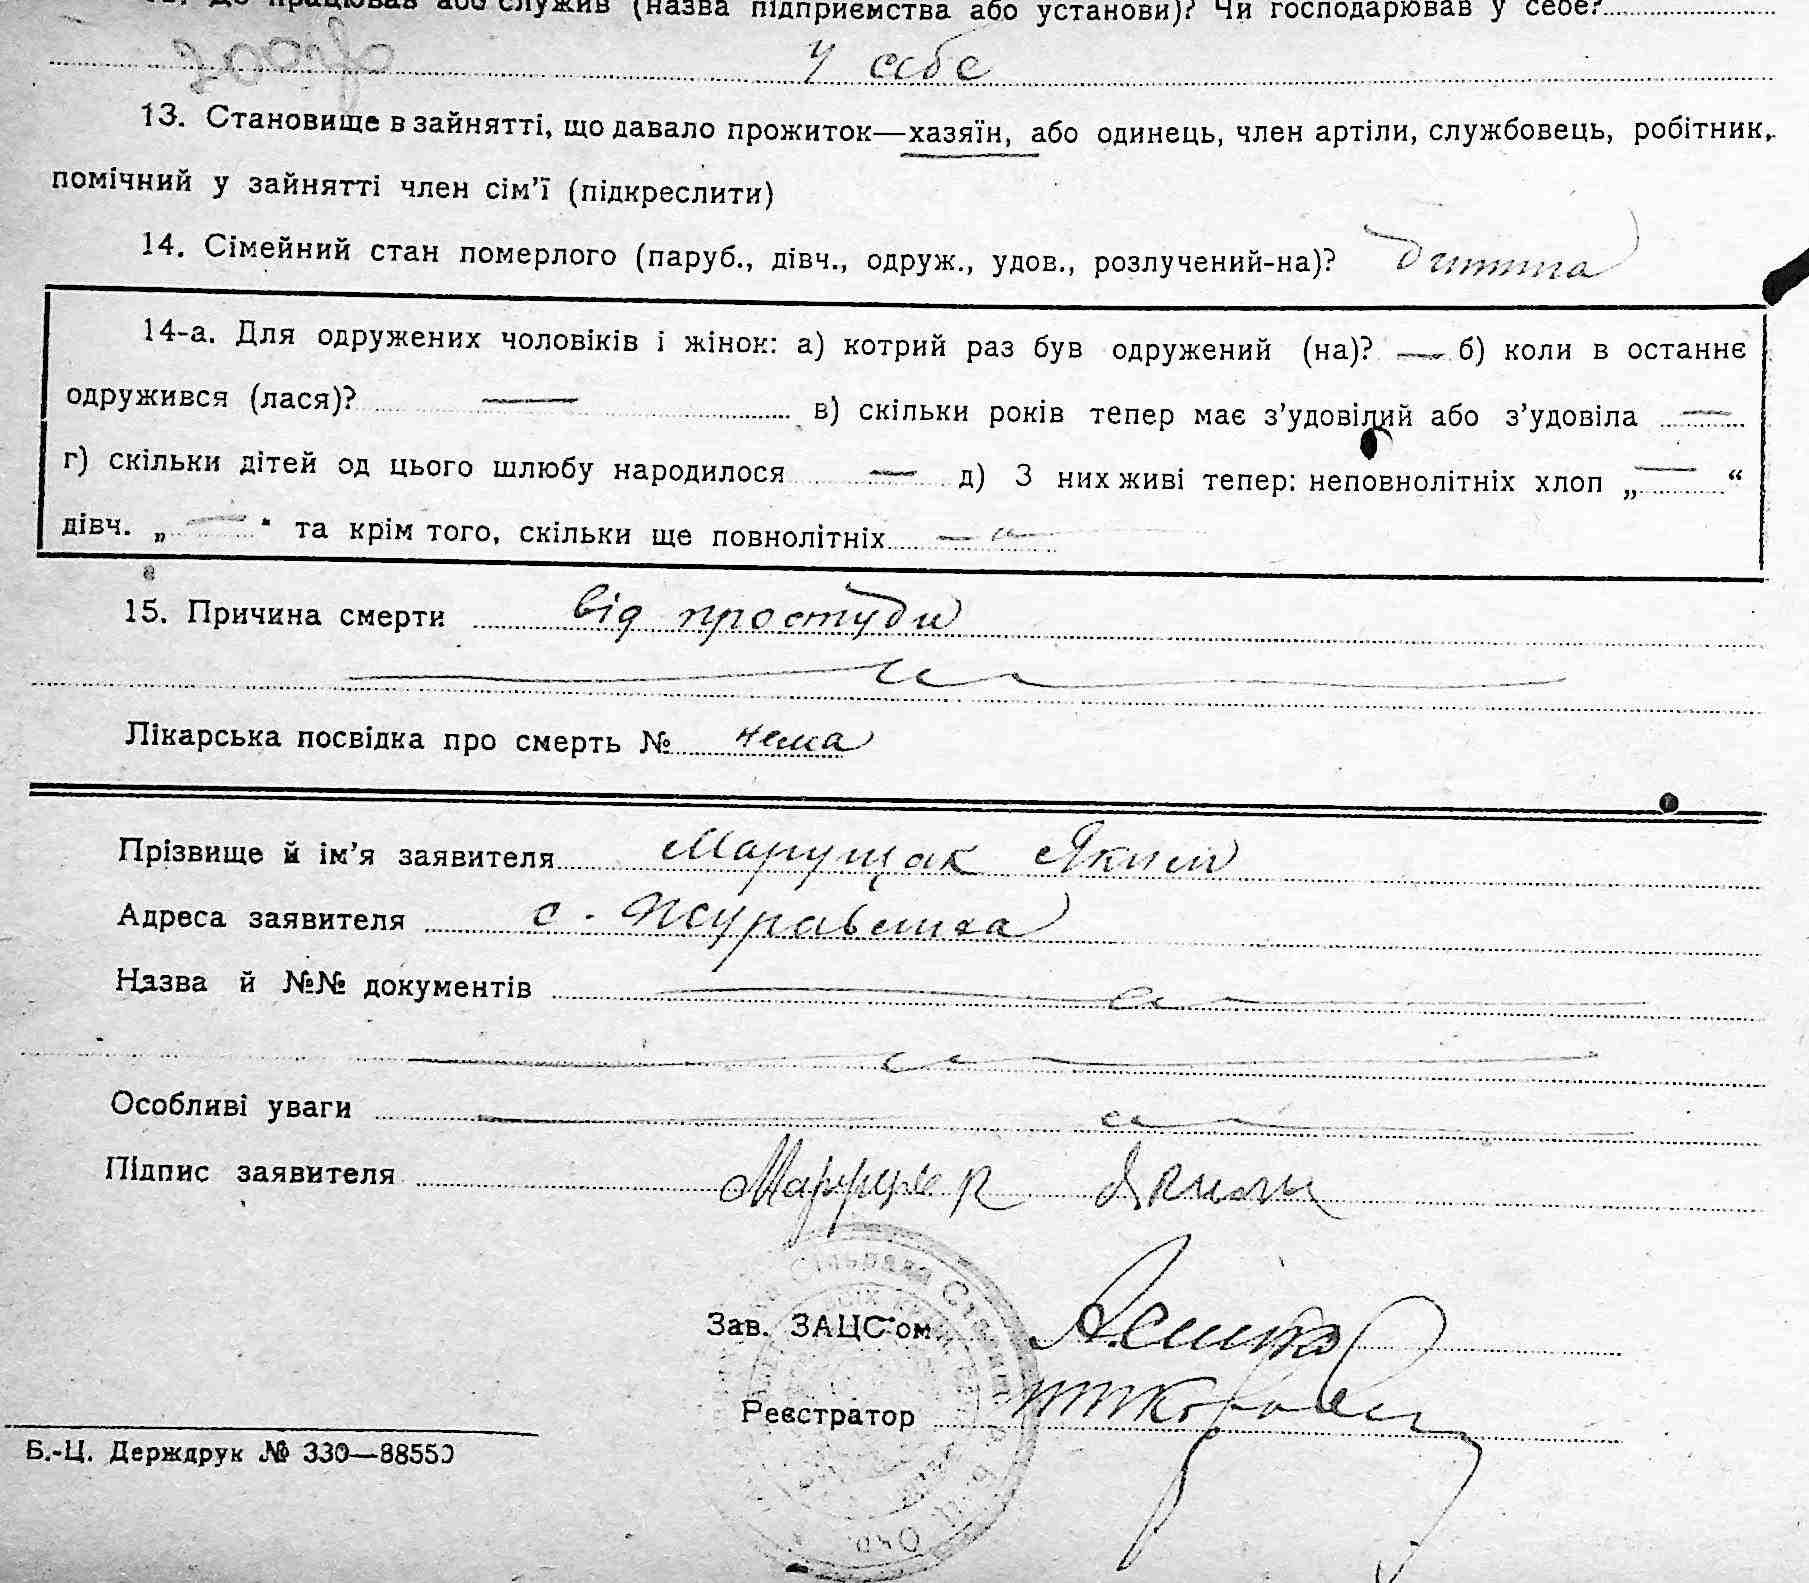 12. Де працював або служив (назва підприємства або установи)? Чи господарював у себе?
у себе
13. Становище в зайнятті, що давало прожиток—хазяїн, або одинець, член артіли, службовець, робітник,
помічний у зайнятті член сім'ї (підкреслити)
14. Сімейний стан померлого (паруб., дівч., одруж., удов., розлучений-на)? дитина
14-а. Для одружених чоловіків і жінок: а) котрий раз був одружений (на)? — б) коли в останнє
одружився (лася)? — в) скільки років тепер має з'удовілий або з'удовіла —
г) скільки дітей од цього шлюбу народилося — д) З них живі тепер: неповнолітніх хлоп „—“
дівч. „—“ та крім того, скільки ще повнолітніх — „ —
15. Причина смерти від простуди
— „ —
Лікарська посвідка про смерть № нема
Прізвище й ім'я заявителя Марущак Яким
Адреса заявителя с. Журавлиха
Назва й №№ документів — „ —
— „ —
Особливі уваги — „ —
Підпис заявителя Марущак Яким
Зав. ЗАЦС'ом
Реєстратор
Б.-Ц. Держдрук № 330—88550